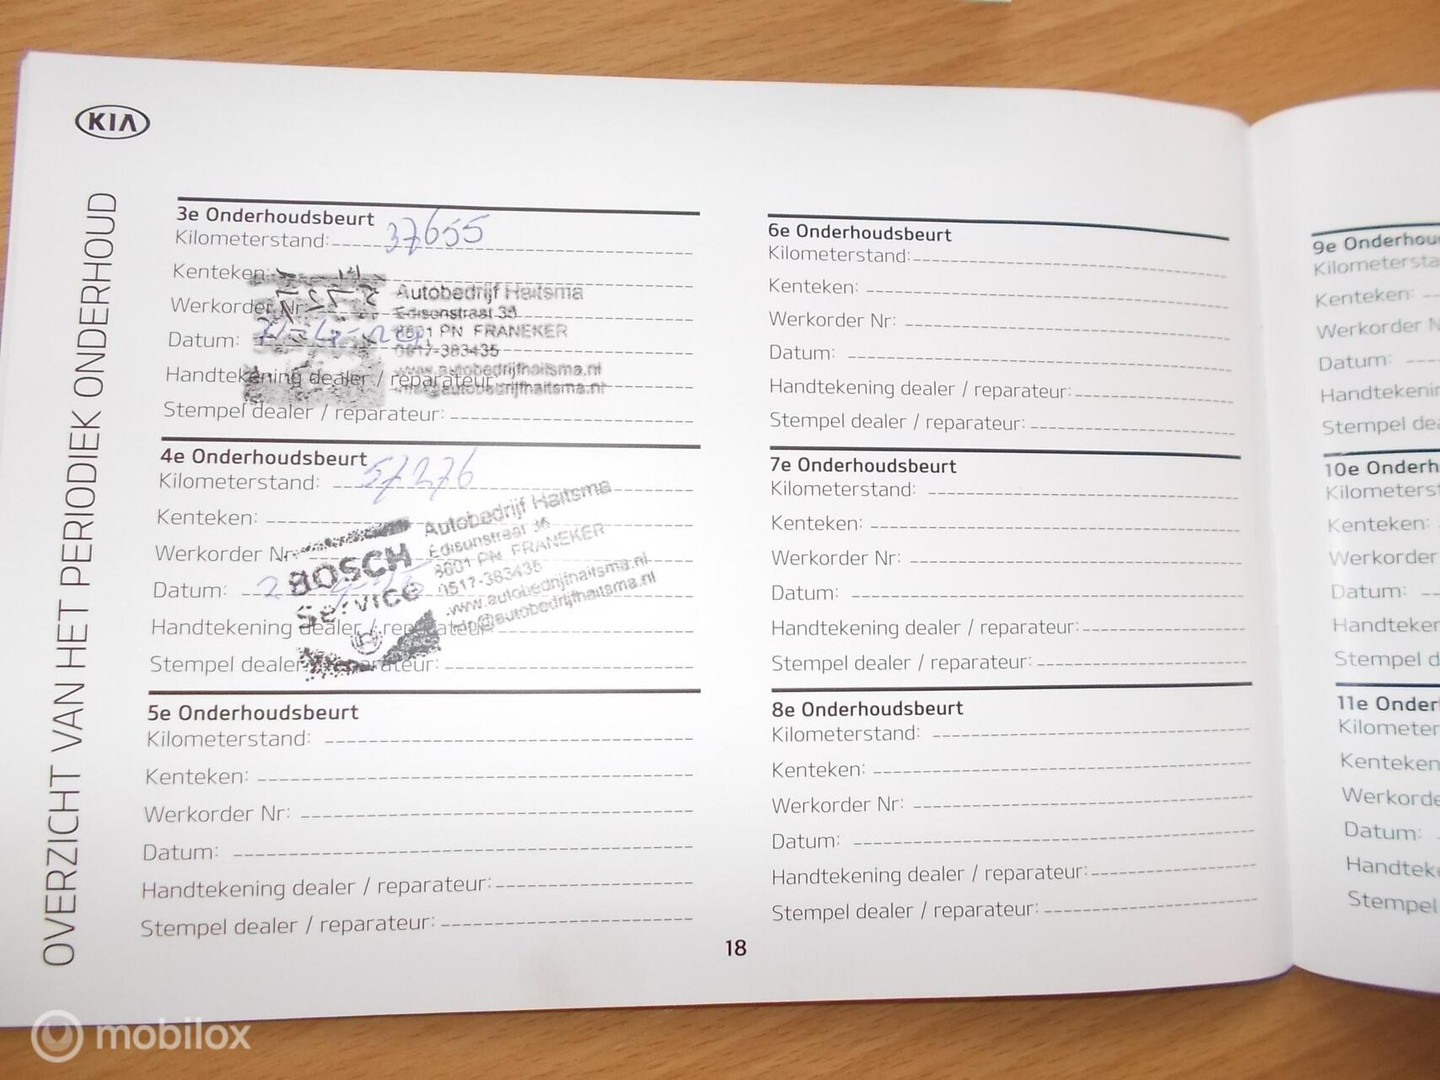 KIA
OVERZICHT VAN HET PERIODIEK ONDERHOUD
3e Onderhoudsbeurt
Kilometerstand: 37655
Kenteken:
Werkorder Nr:
Datum:
Handtekening dealer / reparateur:
Stempel dealer / reparateur:
Autobedrijf Haitsma
Edisonstraat 36
8801 PN FRANEKER
0517-383435
www.autobedrijfhaitsma.nl
4e Onderhoudsbeurt
Kilometerstand: 57276
Kenteken:
Werkorder Nr:
Datum:
Handtekening dealer / reparateur:
Stempel dealer / reparateur:
BOSCH
Service
Autobedrijf Haitsma
Edisonstraat 36
8801 PN FRANEKER
0517-383435
www.autobedrijfhaitsma.nl
5e Onderhoudsbeurt
Kilometerstand:
Kenteken:
Werkorder Nr:
Datum:
Handtekening dealer / reparateur:
Stempel dealer / reparateur:
6e Onderhoudsbeurt
Kilometerstand:
Kenteken:
Werkorder Nr:
Datum:
Handtekening dealer / reparateur:
Stempel dealer / reparateur:
7e Onderhoudsbeurt
Kilometerstand:
Kenteken:
Werkorder Nr:
Datum:
Handtekening dealer / reparateur:
Stempel dealer / reparateur:
8e Onderhoudsbeurt
Kilometerstand:
Kenteken:
Werkorder Nr:
Datum:
Handtekening dealer / reparateur:
Stempel dealer / reparateur:
18
9e Onderhou
Kilometersta
Kenteken:
Werkorder N
Datum:
Handtekenin
Stempel dea
10e Onderh
Kilometerst
Kenteken:
Werkorder
Datum:
Handteker
Stempel d
11e Onder
Kilometer
Kenteken
Werkorde
Datum:
Handtek
Stempel
mobilox